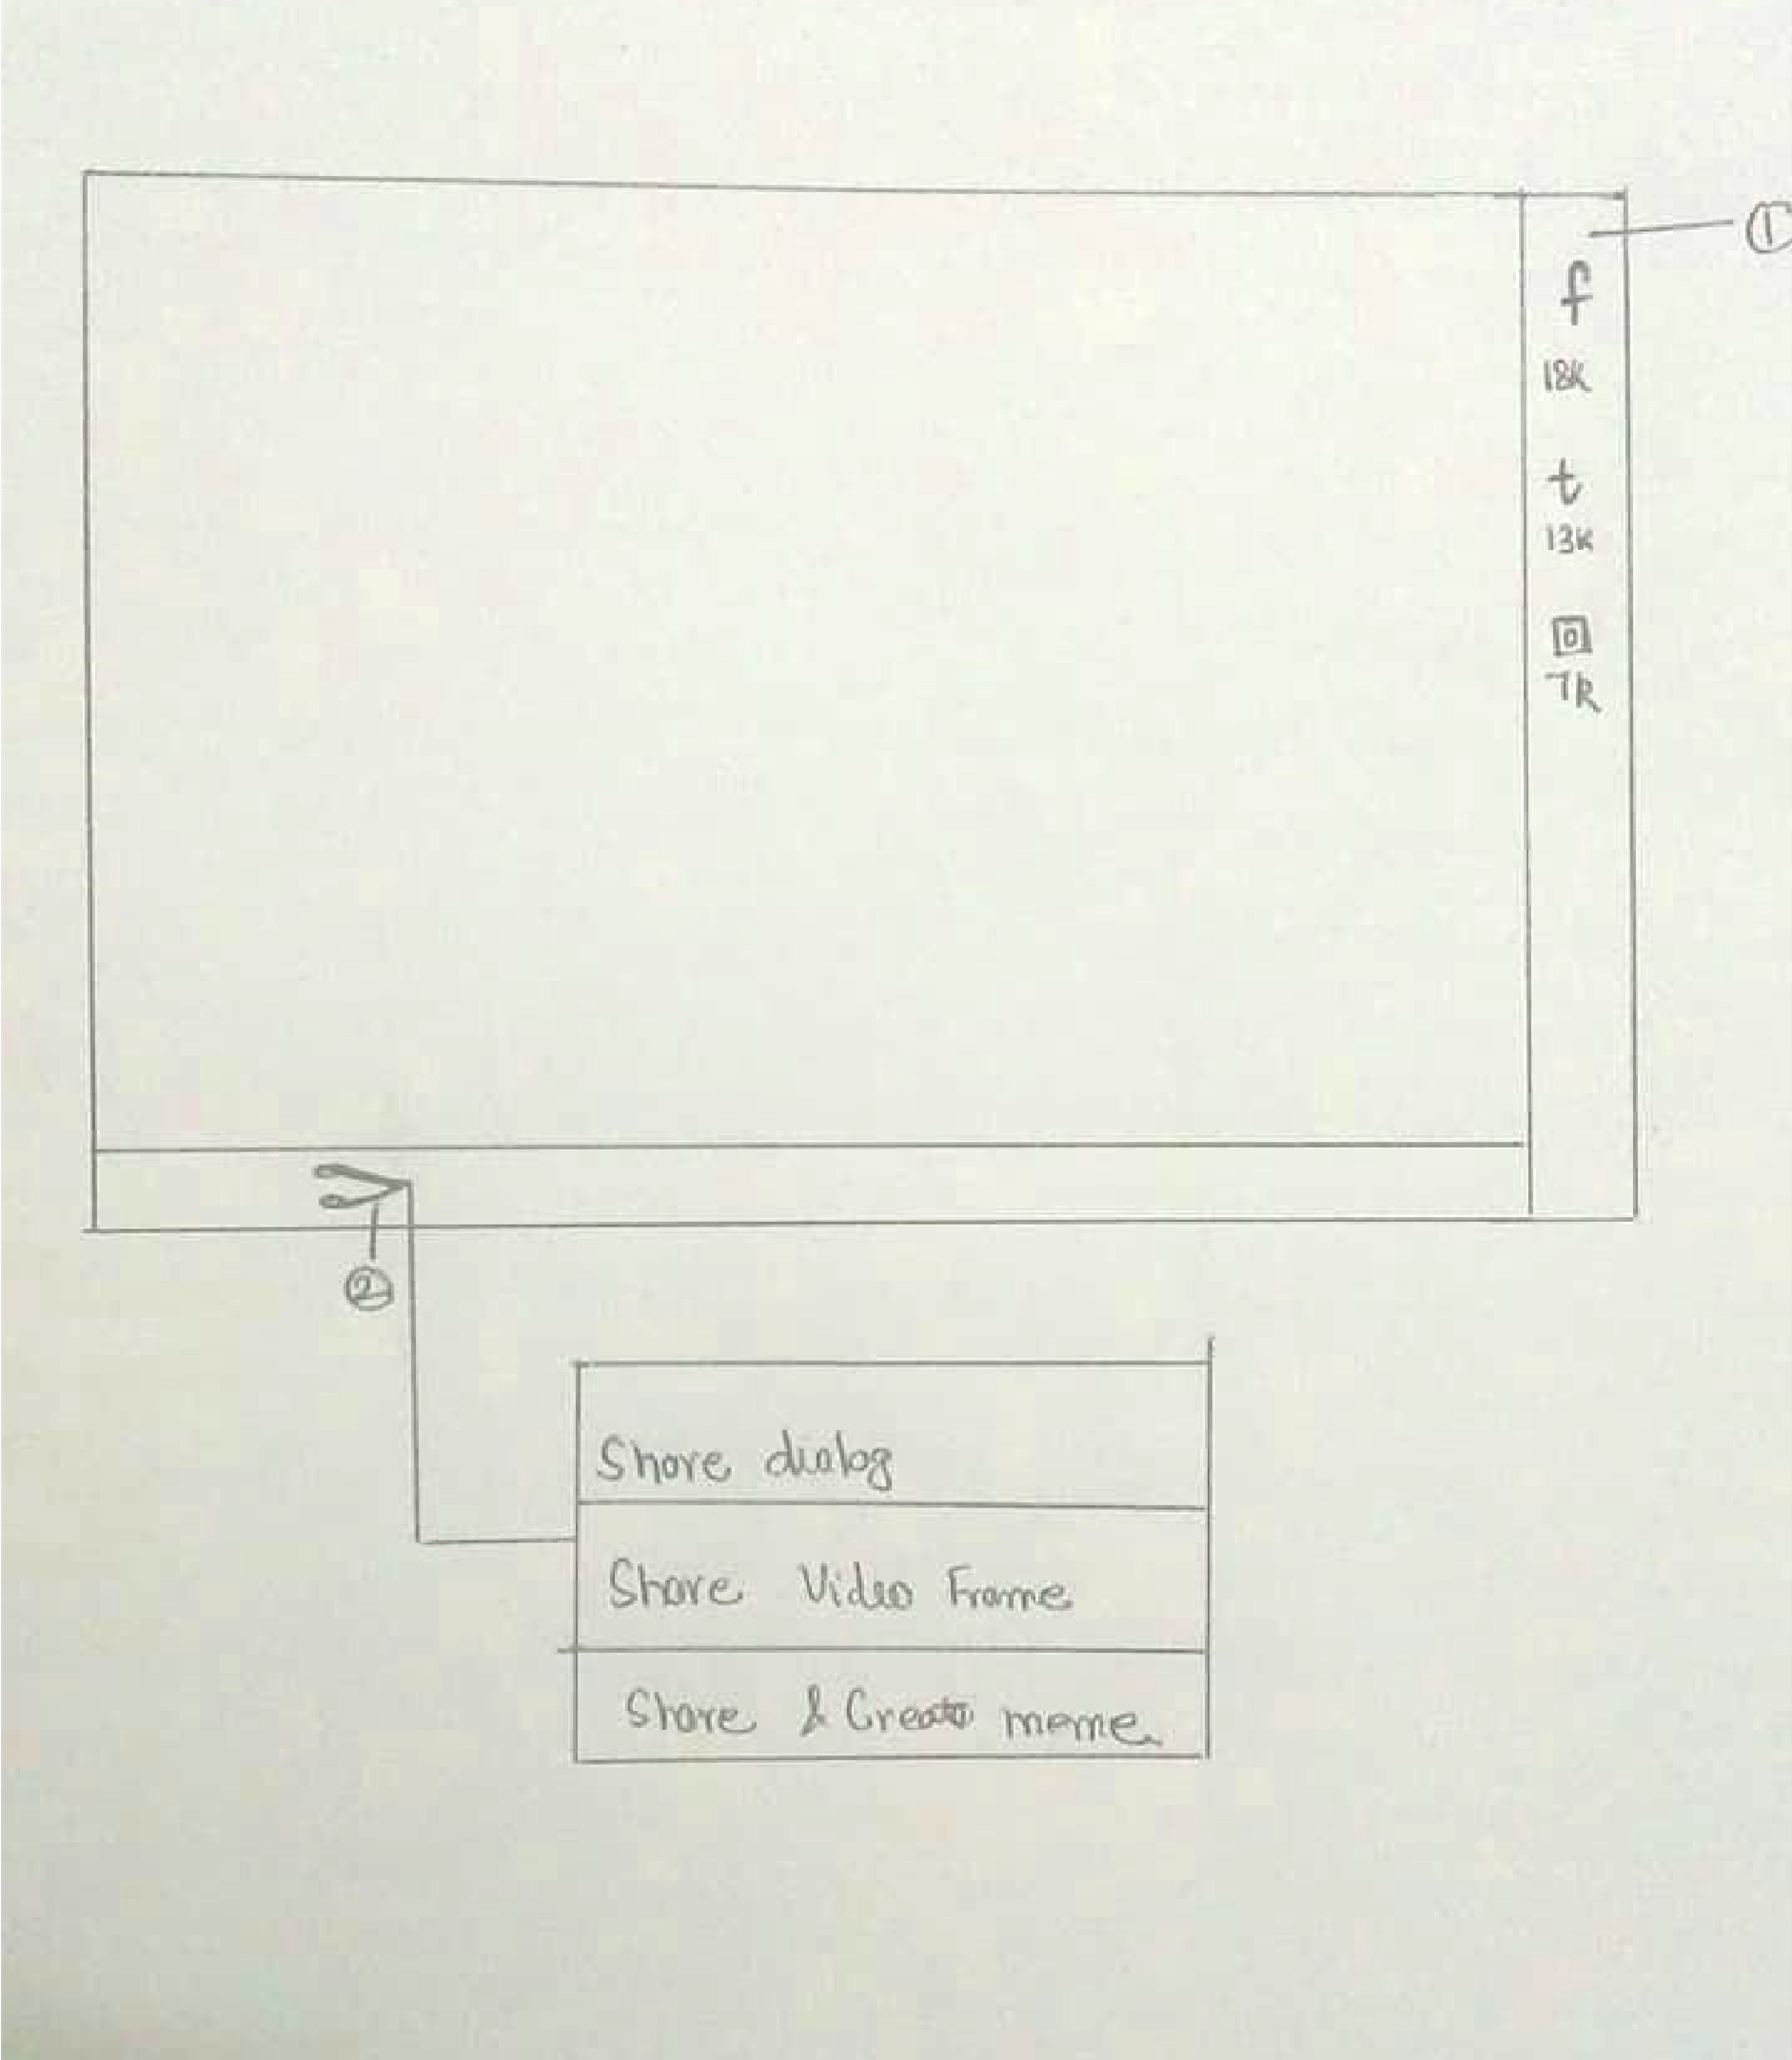 ①
f
18K
t
13K
7K
②
Share dialog
Share Video Frame
Share & Create meme